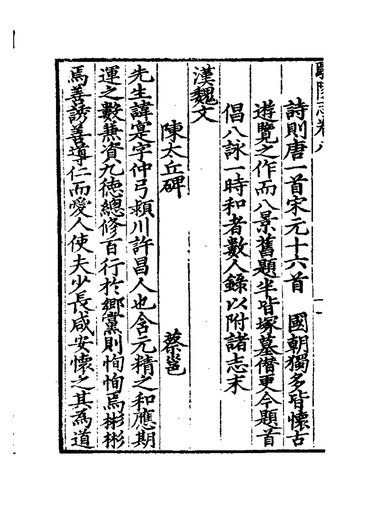 詩則唐一首宋元十六首　國朝獨多皆懷古
遊覽之作而八景舊題半皆塚墓僭更今題首
倡八詠一時和者數人錄以附諸志末
漢魏文
陳太丘碑　蔡邕
先生諱寔字仲弓潁川許昌人也含元精之和應期
運之數兼資九德總修百行於鄉黨則恂恂焉彬彬
焉善誘善導仁而愛人使夫少長咸安懷之其為道